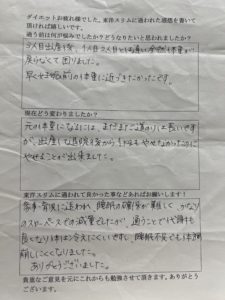 ダイエットお疲れ様でした。東洋スリムに通われた感想を書いて
頂ければ嬉しいです。
通う前は何が悩みでしたか？どうなりたいと思われましたか？
3人目出産後、1人目2人目とは違い全然体重が
戻らなくて困りました。
早く妊娠前の体重に近づきたかったです。
現在どう変わりましたか？
元の体重になるには、まだまだ道のりは長いですが
出産した病院を後から1キロもやせなかったのに
やせることが出来ました。
東洋スリムに通われて良かった事などあればお願いします！
家事・育児に追われ、睡眠の確保が難しくて、かなり
のスローペースでの減量でしたが、通うことで代謝も
良くなり体は冷えにくいですし、睡眠不足でも体調
崩しにくくなりました。
ありがとうございました。
貴重なご意見を元にこれからも勉強させて頂きます。ありがとう
ございます。